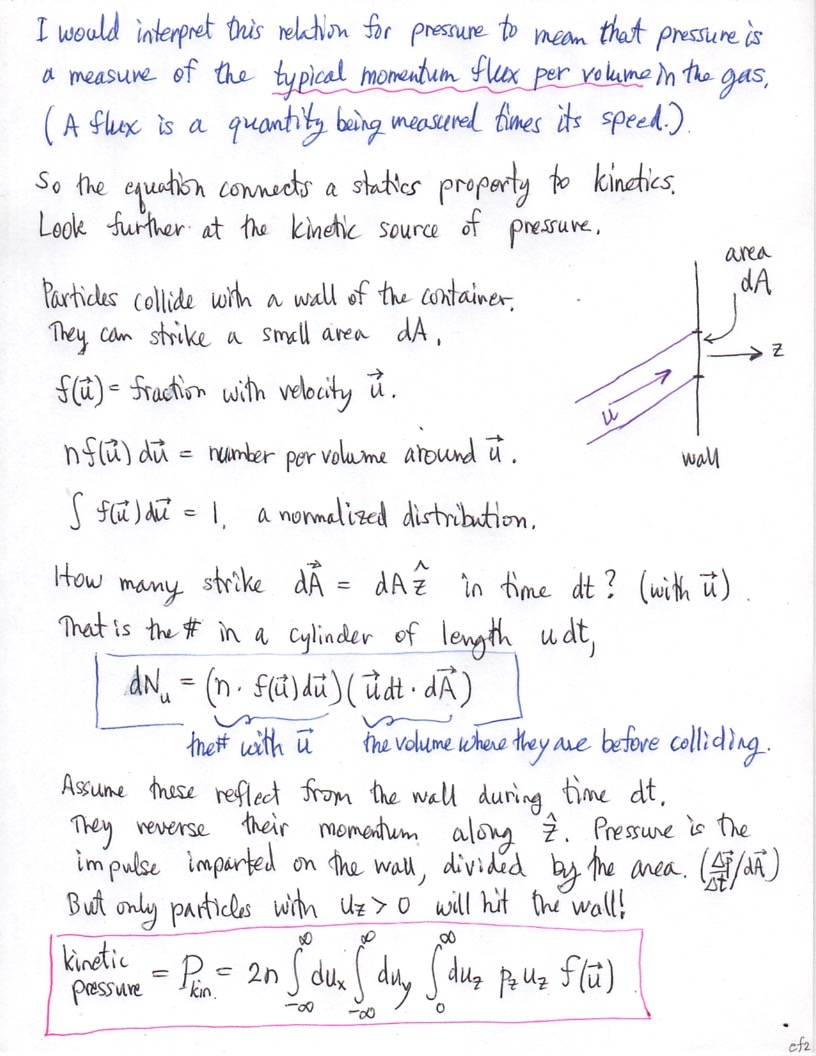 I would interpret this relation for pressure to mean that pressure is
a measure of the typical momentum flux per volume in the gas.
(A flux is a quantity being measured times its speed.)
So the equation connects a statics property to kinetics.
Look further at the kinetic source of pressure.
area
dA
Particles collide with a wall of the container.
They can strike a small area dA.
z
f(u⃗) = fraction with velocity u⃗.
u
n f(u⃗) du⃗ = number per volume around u⃗.
wall
∫ f(u⃗) du⃗ = 1, a normalized distribution.
How many strike dA⃗ = dA ẑ in time dt? (with u⃗)
That is the # in a cylinder of length u dt,
dNᵤ = (n · f(u⃗) du⃗)(u⃗ dt · dA⃗)
the # with u⃗ the volume where they are before colliding.
Assume these reflect from the wall during time dt.
They reverse their momentum along ẑ. Pressure is the
impulse imparted on the wall, divided by the area. (Δp⃗/Δt / dA⃗)
But only particles with u_z > 0 will hit the wall!
kinetic pressure = P_kin. = 2n ∫_{-∞}^{∞} du_x ∫_{-∞}^{∞} du_y ∫_0^∞ du_z p_z u_z f(u⃗)
ef2